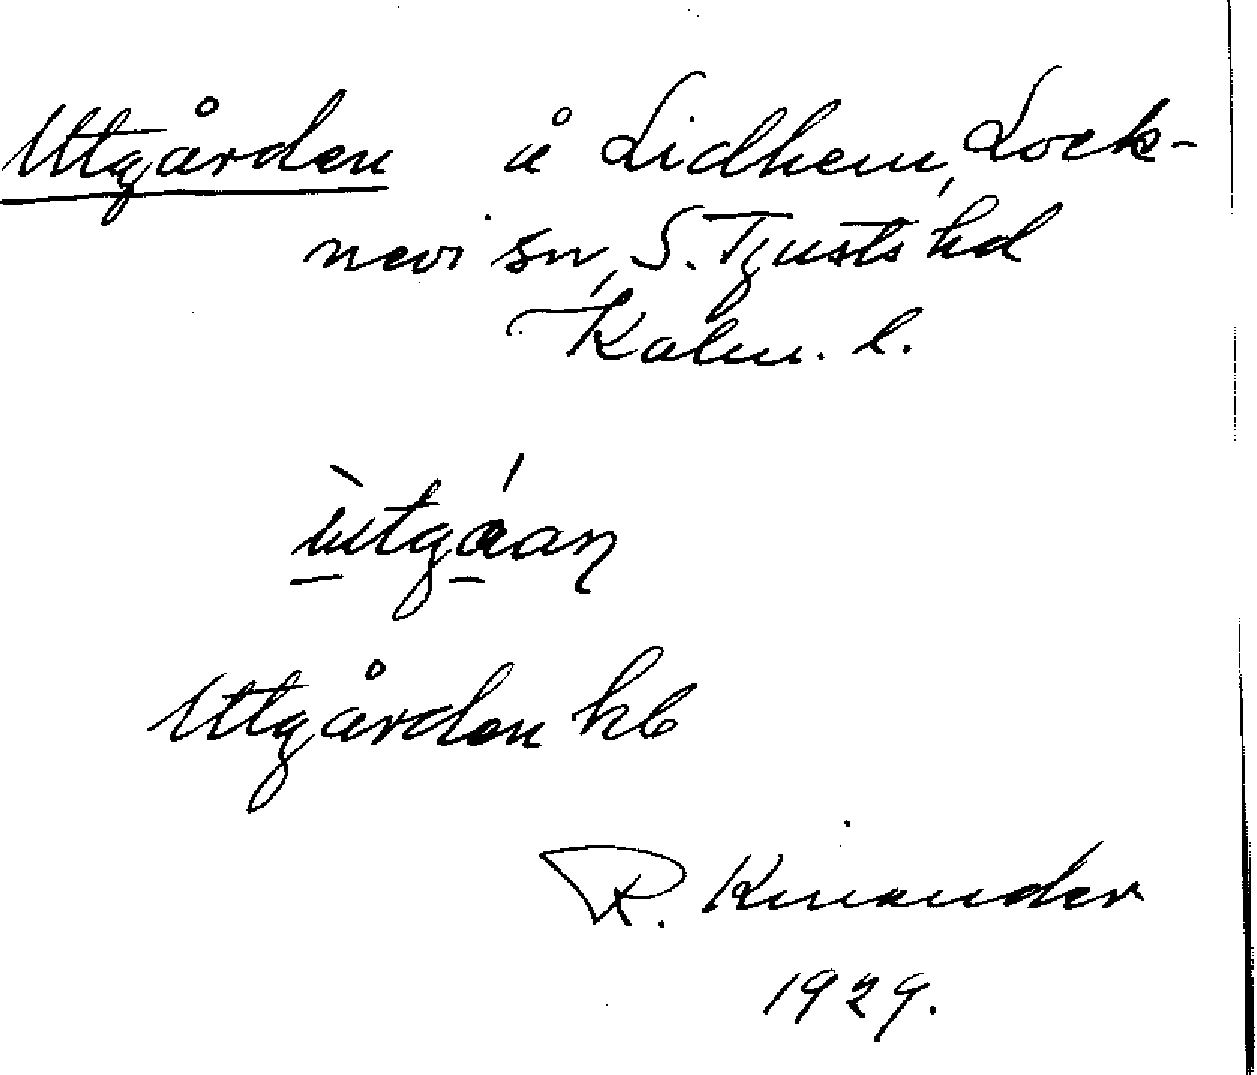 Utgården å Lidhem, Lock-
nevi sn, S. Tjusts hd
Kalm. l.
ùtgáan
Utgården kb
R. Kinander
1929.